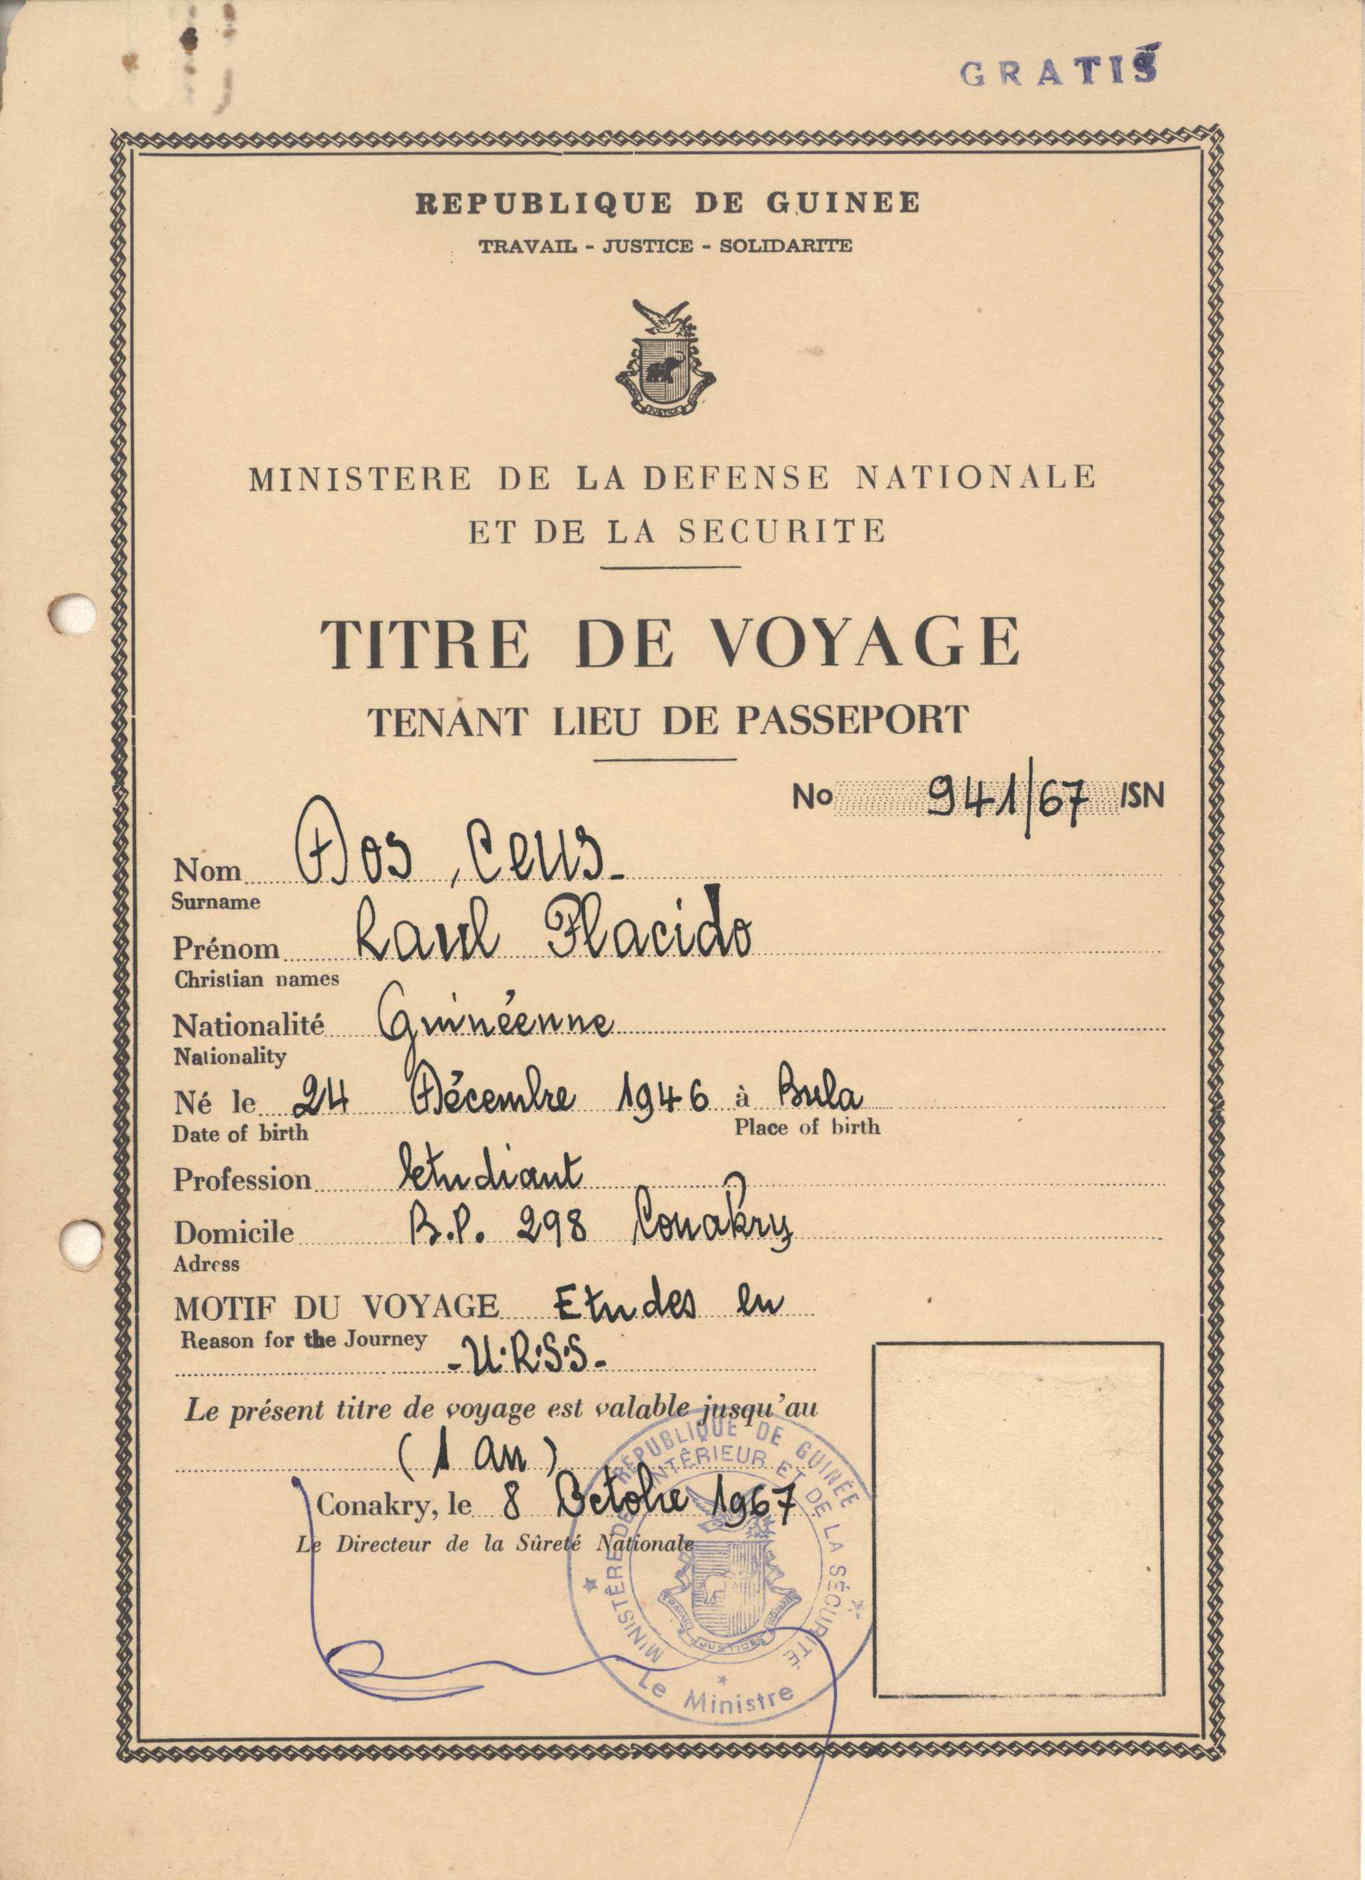 GRATIS
REPUBLIQUE DE GUINEE
TRAVAIL - JUSTICE - SOLIDARITE
MINISTERE DE LA DEFENSE NATIONALE
ET DE LA SECURITE
TITRE DE VOYAGE
TENANT LIEU DE PASSEPORT
No 941/67 /SN
Nom Dos Ceus
Surname
Prénom Raul Placido
Christian names
Nationalité Guinéenne
Nationality
Né le 24 Décembre 1946 à Bula
Date of birth Place of birth
Profession etudiant
Domicile B.P. 298 Conakry
Adress
MOTIF DU VOYAGE Etudes en
Reason for the Journey
-U.R.S.S-
Le présent titre de voyage est valable jusqu'au
(1 an)
Conakry, le 8 Octobre 1967
Le Directeur de la Sûreté Nationale
REPUBLIQUE DE GUINÉE
MINISTÈRE DE L'INTÉRIEUR ET DE LA SÉCURITÉ
Le Ministre